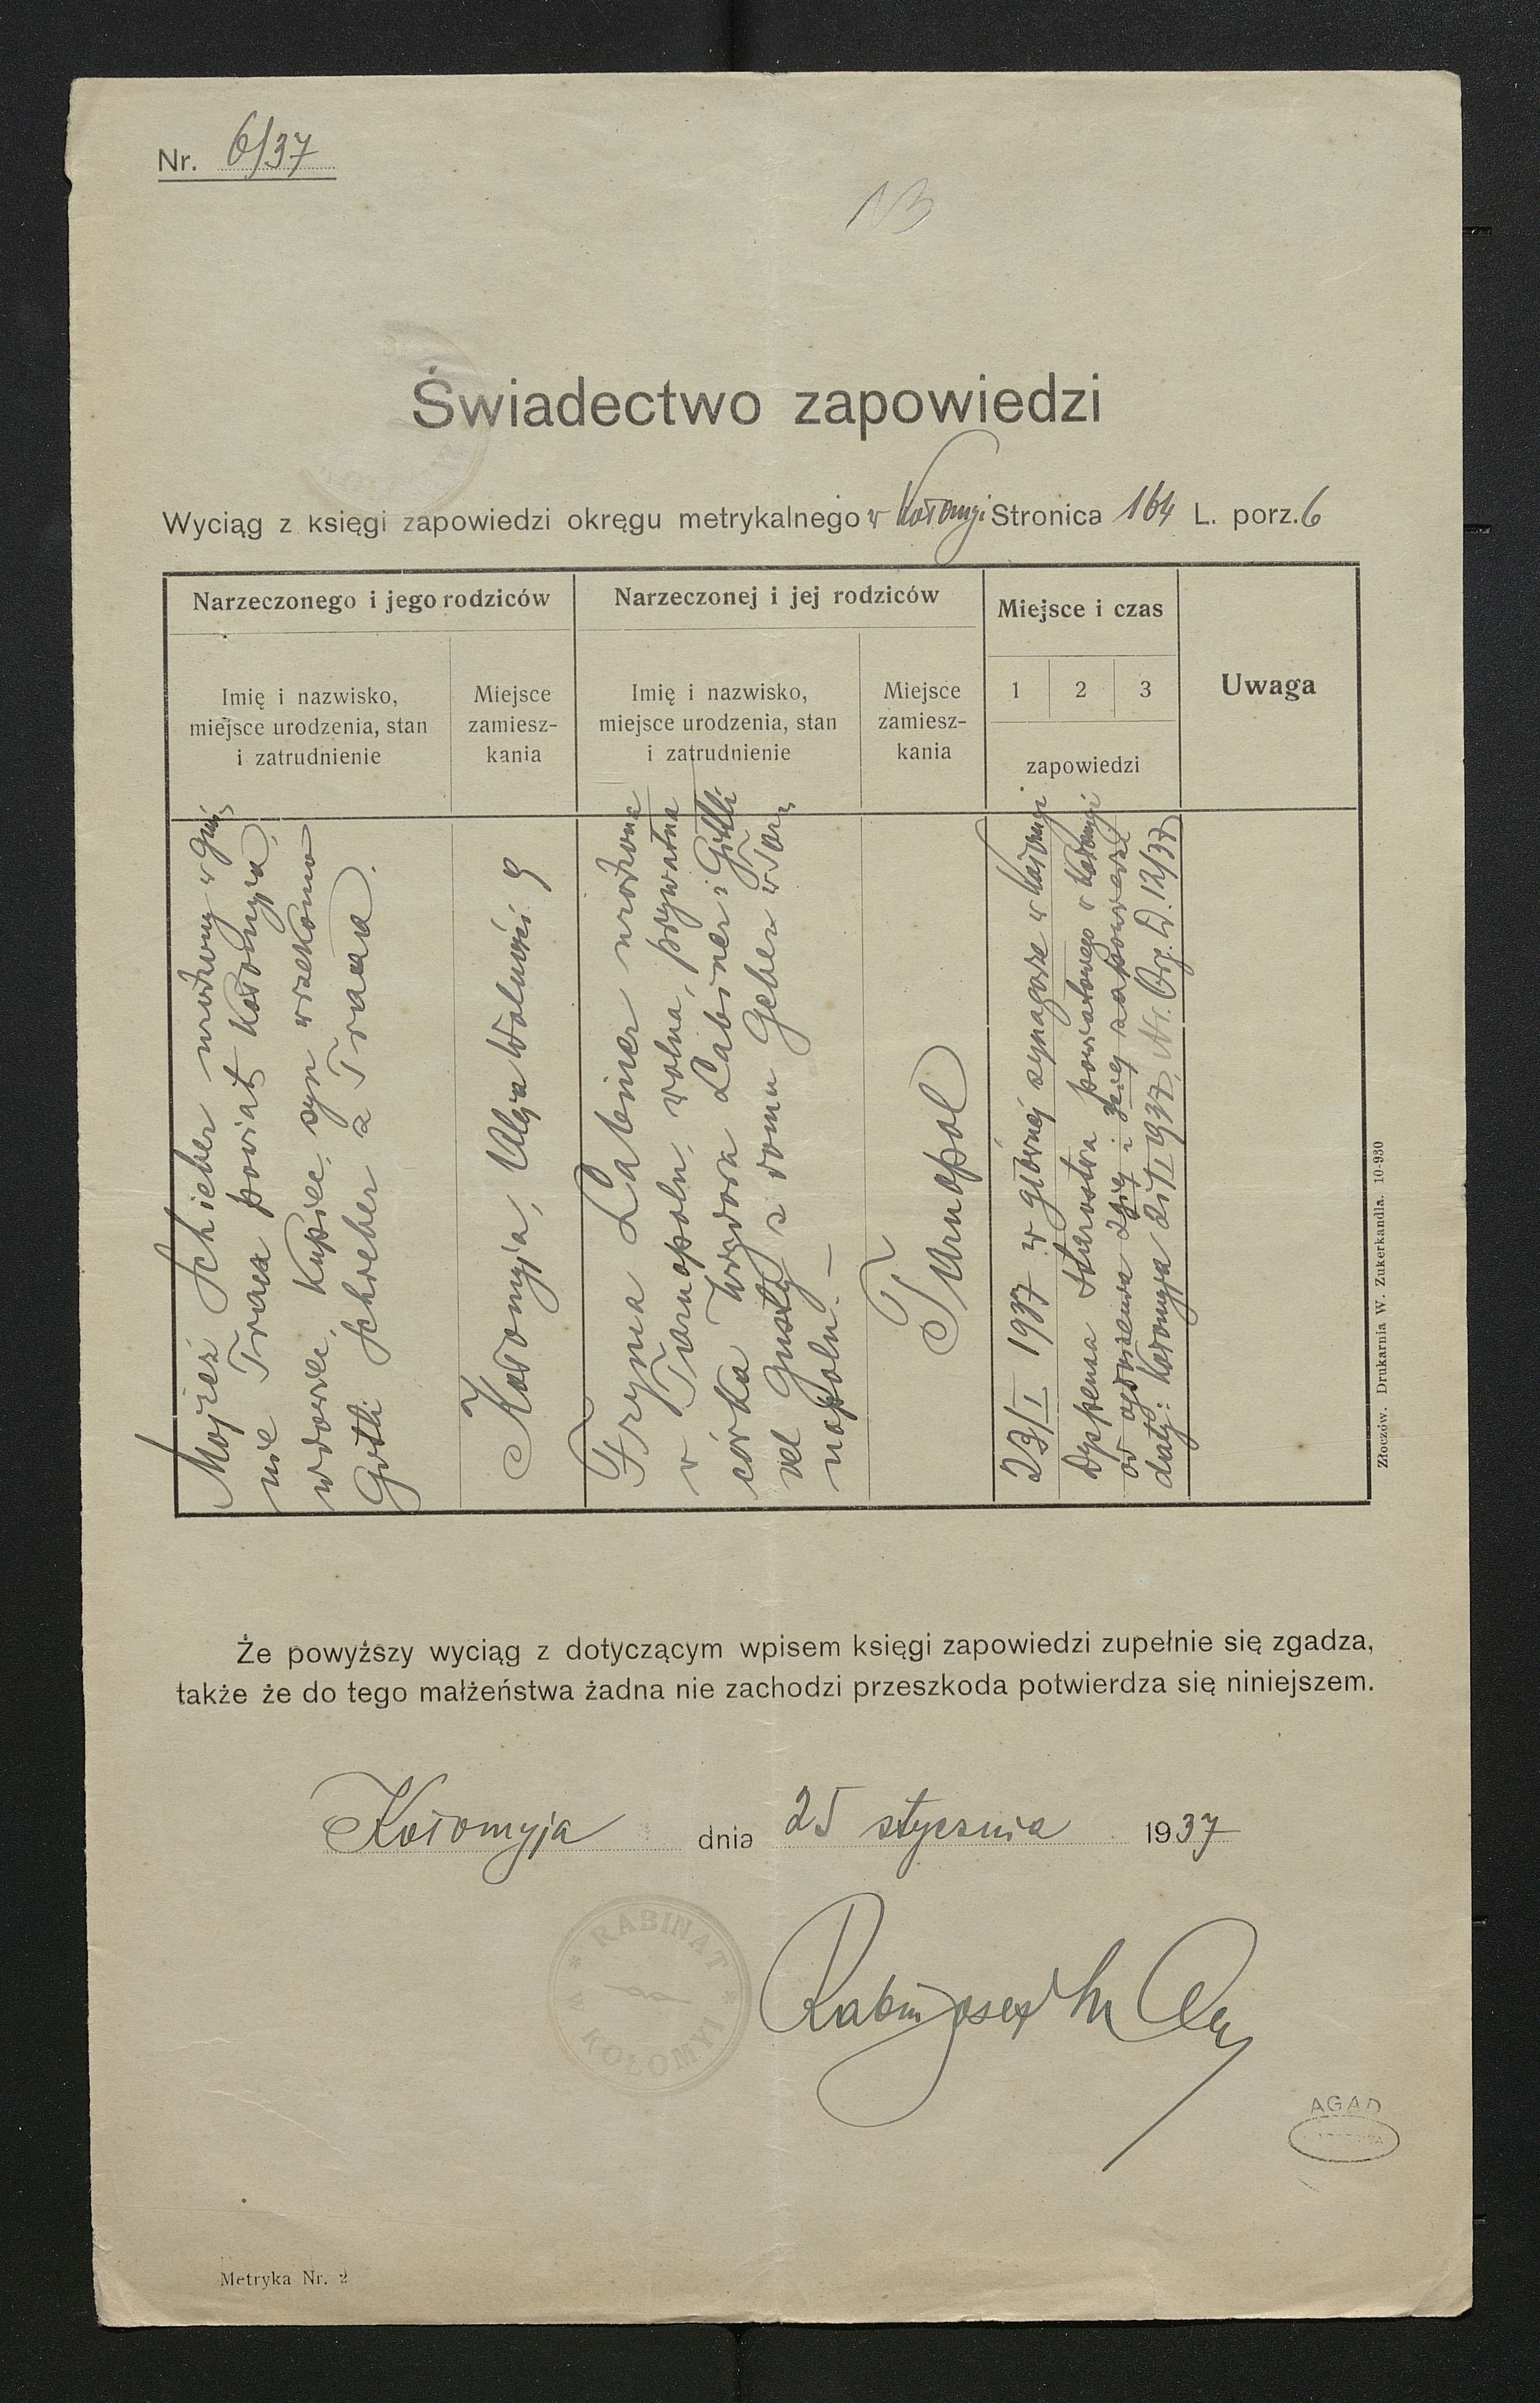 Nr. 6/37
Świadectwo zapowiedzi
Wyciąg z księgi zapowiedzi okręgu metrykalnego w Kołomyi Stronica 164 L. porz. 6
Narzeczonego i jego rodziców
Narzeczonej i jej rodziców
Miejsce i czas
Uwaga
Imię i nazwisko,
miejsce urodzenia, stan
i zatrudnienie
Miejsce
zamiesz-
kania
Imię i nazwisko,
miejsce urodzenia, stan
i zatrudnienie
Miejsce
zamiesz-
kania
1 2 3
zapowiedzi
Mojżesz Schieber urodzony w gmi„
nie Tracz powiat Kołomyja,
wdowiec, kupiec, syn rzekomo
Gitli Schieber z Tracza.
Kołomyja, Ulica Wolności 9
Fryma Labiner urodzona
w Tarnopolu, wolna, prywatna
córka Izydora Labiner i Gitli
vel Gusty z domu Geber w Tar„
nopolu. —
Tarnopol
23/I 1937 w głównej synagodze w Kołomyi
Dyspensa Starostwa powiatowego w Kołomyi
od ogłoszenia 2giej i 3ciej zapowiedzi
daty: Kołomyja 21/I 1937, Nr. Org. D. 12/37
Złoczów. Drukarnia W. Zukerkandla. 10-930
Że powyższy wyciąg z dotyczącym wpisem księgi zapowiedzi zupełnie się zgadza,
także że do tego małżeństwa żadna nie zachodzi przeszkoda potwierdza się niniejszem.
Kołomyja dnia 25 stycznia 1937
* RABINAT *
W KOŁOMYI
Rabin Josef
AGAD
Metryka Nr. 2